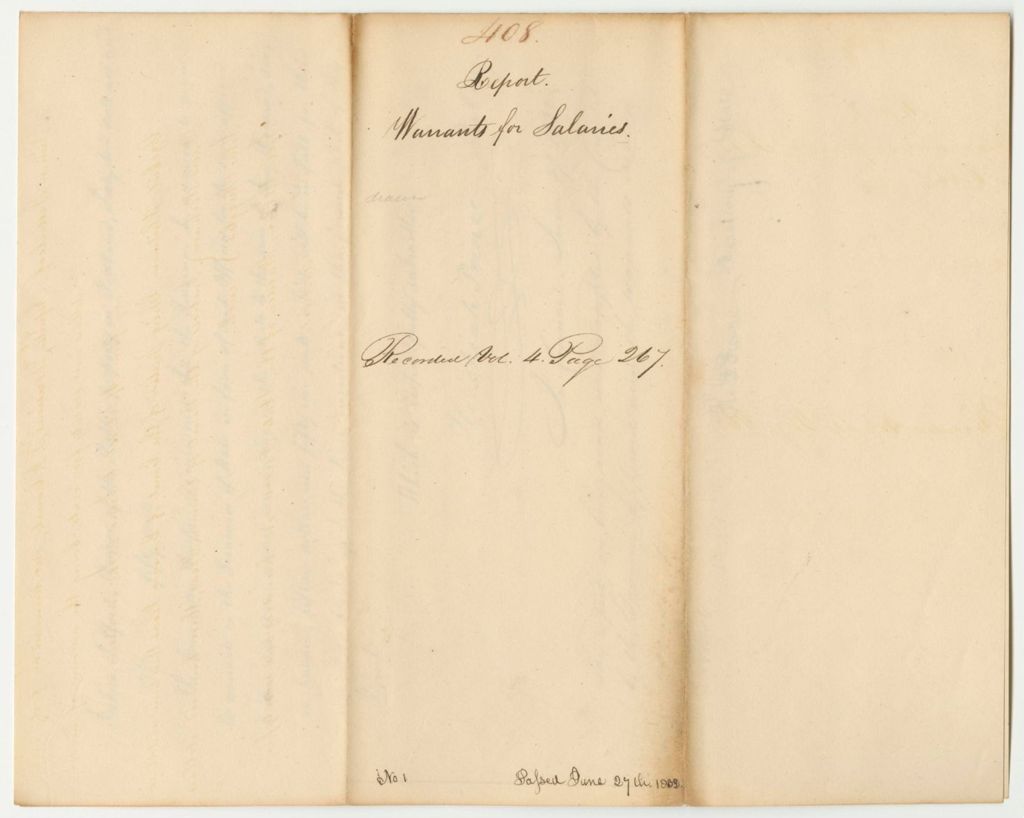 408.
Report.
Warrants for Salaries.
drawn
Recorded Vol. 4. Page 267.
No 1
Passed June 27th.